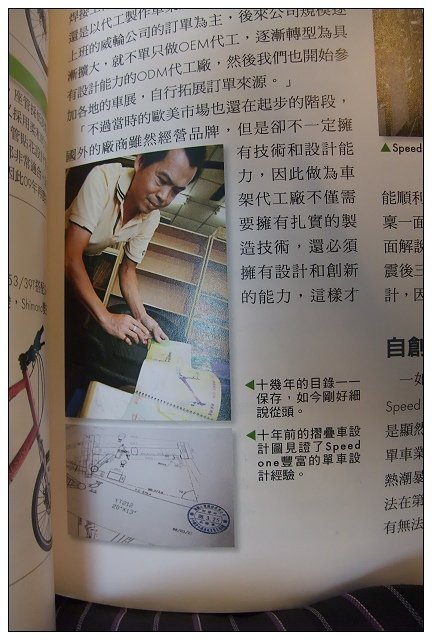 還是以代工製作車架
上班的威輪公司的訂單為主，後來公司規模逐
漸擴大，就不單只做OEM代工，逐漸轉型為具
有設計能力的ODM代工廠，然後我們也開始參
加各地的車展，自行拓展訂單來源。」
「不過當時的歐美市場也還在起步的階段，
國外的廠商雖然經營品牌，但是卻不一定擁
有技術和設計能
力，因此做為車
架代工廠不僅需
要擁有扎實的製
造技術，還必須
擁有設計和創新
的能力，這樣才
◀十幾年的目錄一一
保存，如今剛好細
說從頭。
◀十年前的摺疊車設
計圖見證了Speed
one豐富的單車設
計經驗。
YT212
20"X13"
53/39T搭配
，Shimano
▲Speed
能順利
稟一面
面解說
震後三
計，因
自創
一如
Speed
是顯然
單車業
熱潮暴
法在第
有無法